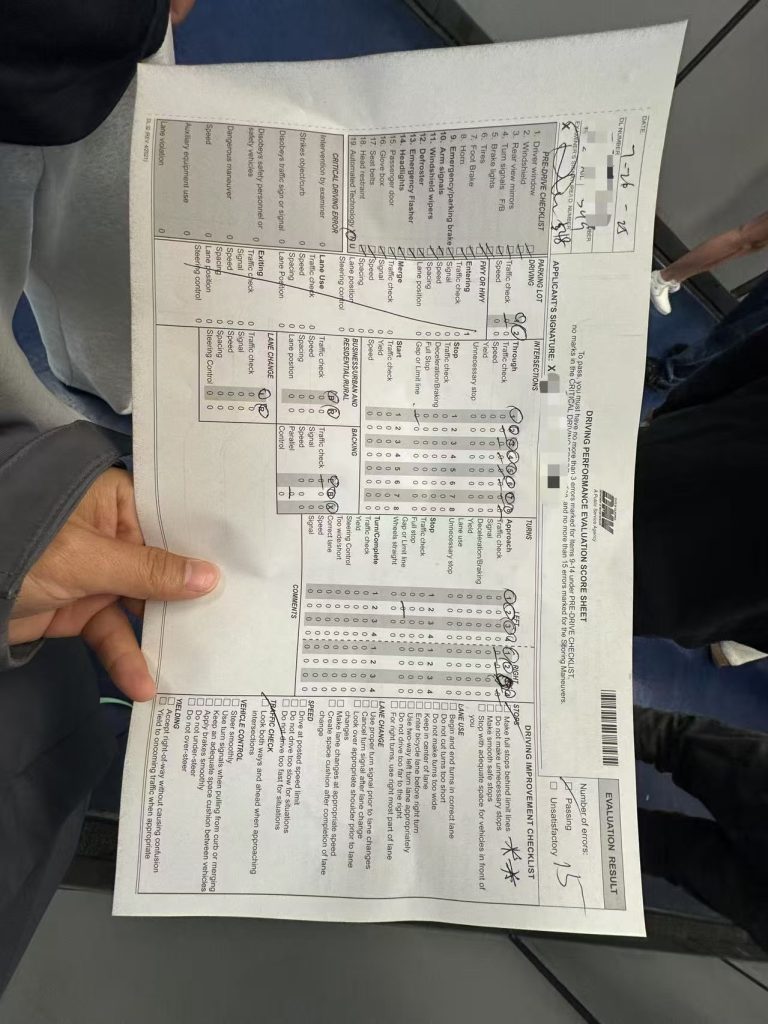 DMV
A Public Service Agency
DRIVING PERFORMANCE EVALUATION SCORE SHEET
To pass, you must have no more than 3 errors marked for items 9-14 under PRE-DRIVE CHECKLIST,
no marks in the CRITICAL DRIVING and no more than 15 errors marked for the Scoring Maneuvers.
EVALUATION RESULT
Number of errors: 15
Passing
Unsatisfactory
DATE:
DL NUMBER
APPLICANT'S SIGNATURE: X
PRE-DRIVE CHECKLIST
1. Driver window
2. Windshield
3. Rear view mirrors
4. Turn signals F/B
5. Brake lights
6. Tires
7. Foot Brake
8. Horn
9. Emergency/parking brake
10. Arm signals
11. Windshield wipers
12. Defroster
13. Emergency Flasher
14. Headlights
15. Passenger door
16. Glove box
17. Seat belts
18. Head restraint
19. Automated Technology
CRITICAL DRIVING ERROR
Intervention by examiner 0
Strikes object/curb 0
Disobeys traffic sign or signal 0
Disobeys safety personnel or
safety vehicles 0
Dangerous maneuver 0
Speed 0
Auxiliary equipment use 0
Lane violation 0
DL 32 (REV. 4/2021)
PARKING LOT
DRIVING
Traffic check
Speed
FWY OR HWY
Entering
Traffic check
Signal
Speed
Spacing
Lane position
Merge
Traffic check
Signal
Speed
Spacing
Lane position
Steering control
Lane Use
Traffic check
Speed
Spacing
Lane Position
Exiting
Traffic check
Signal
Speed
Spacing
Lane position
Steering control
INTERSECTIONS
Through
Traffic check
Speed
Yield
Unnecessary stop
Stop 1 2 3 4 5 6 7 8
Traffic check
Deceleration/Braking
Full Stop
Gap or Limit line
Start 1 2 3 4 5 6 7 8
Traffic check
Yield
Speed
BUSINESS/URBAN AND
RESIDENTIAL/RURAL
Traffic check
Signal
Speed
Spacing
Lane position
LANE CHANGE
Traffic check
Signal
Speed
Spacing
Steering Control
BACKING
Traffic check
Speed
Parallel
Control
TURNS
LEFT RIGHT
Approach
Traffic check
Signal
Deceleration/Braking
Yield
Lane use
Unnecessary stop
Stop 1 2 3 4 1 2 3 4
Traffic check
Full stop
Gap or Limit line
Wheels straight
Turn/Complete 1 2 3 4 1 2 3 4
Traffic check
Yield
Steering Control
Too wide/short
Correct lane
Speed
Signal
COMMENTS
DRIVING IMPROVEMENT CHECKLIST
STOPS
Make full stops behind limit lines
Do not make unnecessary stops
Make smooth safe stops
Stop with adequate space for vehicles in front of
you
LANE USE
Begin and end turns in correct lane
Do not cut turns too short
Do not make turns too wide
Keep in center of lane
Enter bicycle lane before right turn
Use two-way left turn lane appropriately
Do not drive too far to the right
For right turns, use right most part of lane
LANE CHANGE
Use proper turn signal prior to lane changes
Cancel turn signal after lane change
Look over appropriate shoulder prior to lane
changes
Make lane changes at appropriate speed
Create space cushion after completion of lane
change
SPEED
Drive at posted speed limit
Do not drive too slow for situations
Do not drive too fast for situations
TRAFFIC CHECK
Look both ways and ahead when approaching
intersections
VEHICLE CONTROL
Steer smoothly
Use turn signals when pulling from curb or merging
Keep an adequate space cushion between vehicles
Apply brakes smoothly
Do not under-steer
Do not over-steer
YIELDING
Accept right-of-way without causing confusion
Yield to oncoming traffic when appropriate